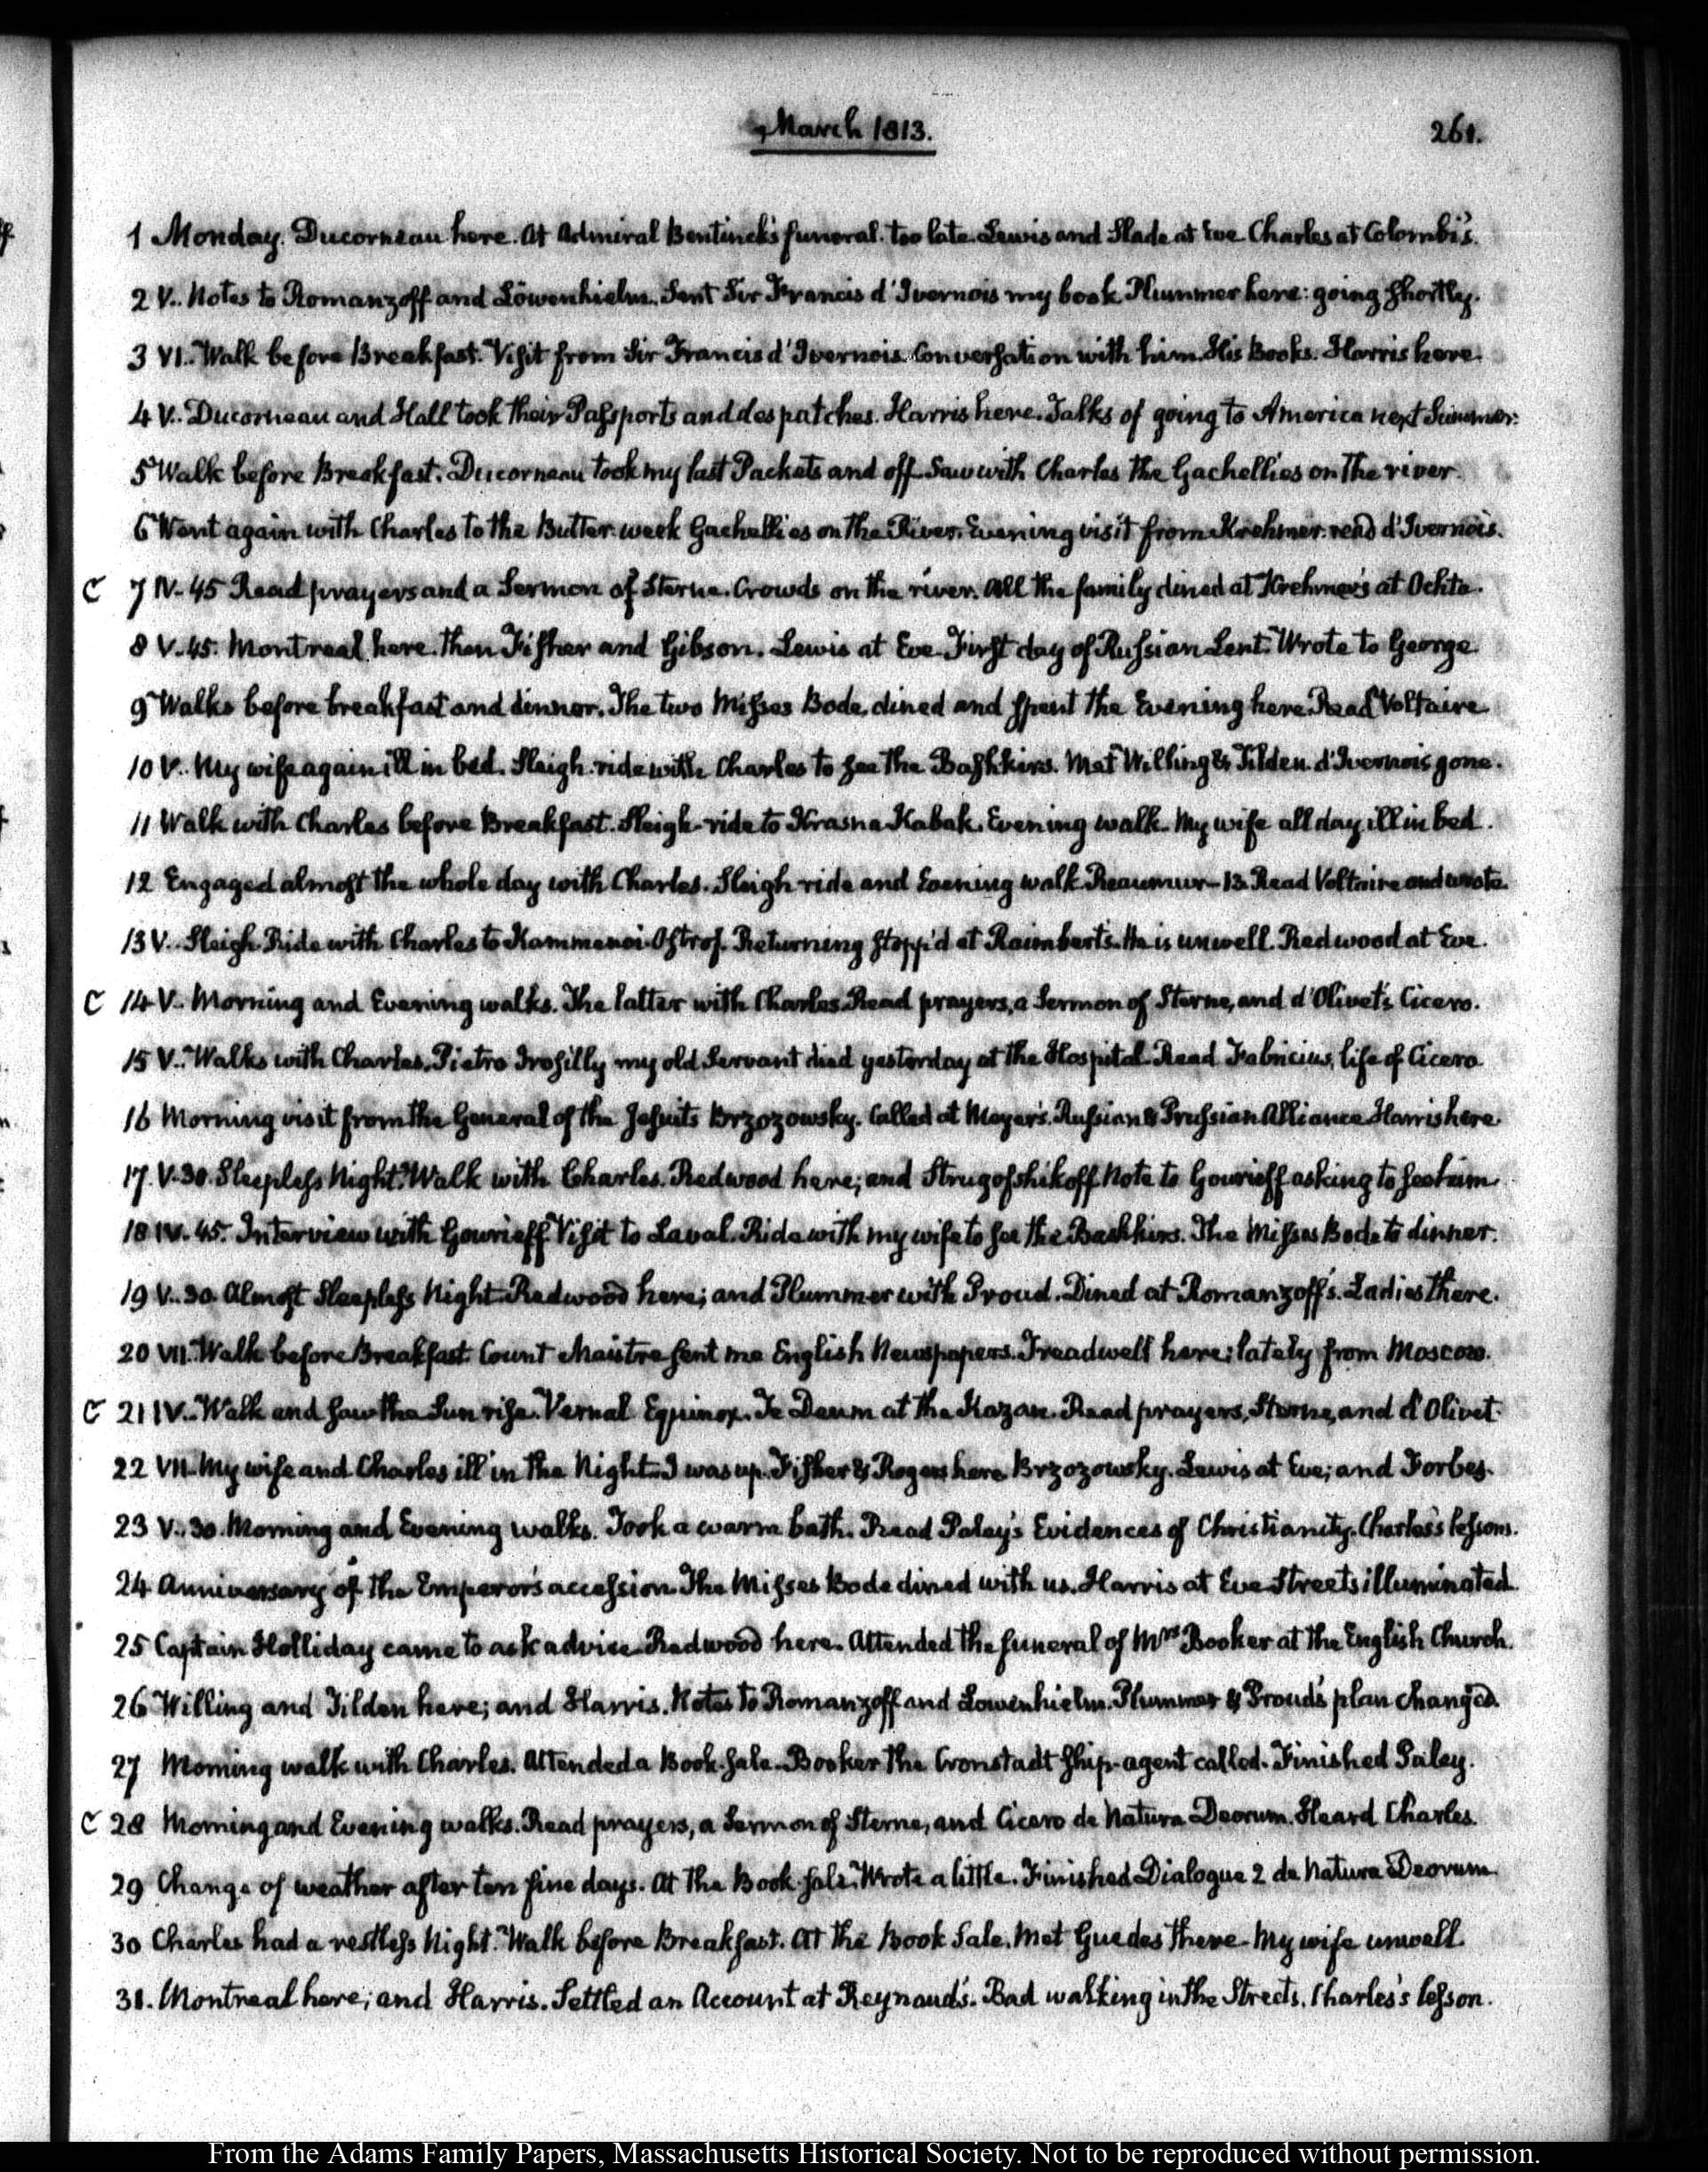 March 1813.
261.
1 Monday. Ducorneau here. At Admiral Bentinck's funeral. too late. Lewis and Slade at Eve. Charles at Colombi's.
2 V.. Notes to Romanzoff and Löwenhielm. Sent Sir Francis d'Ivernois my book. Plummer here: going shortly.
3 VI.. Walk before Breakfast. Visit from Sir Francis d'Ivernois. Conversation with him. His Books. Harris here.
4 V.. Ducorneau and Hall took their Passports and despatches. Harris here. Talks of going to America next Summer.
5 Walk before Breakfast. Ducorneau took my last Packets and off. Saw with Charles the Gachellies on the river.
6 Went again with Charles to the Butter-week Gachellies on the River. Evening visit from Krehmer. read d'Ivernois.
C 7 IV-45 Read prayers and a Sermon of Sterne. Crowds on the river. All the family dined at Krehmer's at Ochta.
8 V.45. Montreal here. then Fisher and Gibson. Lewis at Eve. First day of Russian Lent. Wrote to George
9 Walks before breakfast and dinner. The two Misses Bode, dined and spent the Evening here. Read Voltaire
10 V.. My wife again ill in bed. Sleigh-ride with Charles to see the Bashkirs. Met Willing & Tilden. d'Ivernois gone.
11 Walk with Charles before Breakfast. Sleigh-ride to Krasna Kabak. Evening walk. My wife all day ill in bed.
12 Engaged almost the whole day with Charles. Sleigh ride and Evening walk. Reaumur-13. Read Voltaire and wrote.
13 V.. Sleigh Ride with Charles to Kammenoi-Ostrof. Returning stopp'd at Raimbert's. He is unwell. Redwood at Eve.
C 14 V.. Morning and Evening walks. The latter with Charles. Read prayers, a Sermon of Sterne, and d'Olivet's Cicero.
15 V.. Walks with Charles. Pietro Irosilly my old Servant died yesterday at the Hospital. Read Fabricius, life of Cicero
16 Morning visit from the General of the Jesuits Brzozowsky. Called at Meyer's. Russian & Prussian Alliance. Harris here.
17. V.30. Sleepless Night. Walk with Charles. Redwood here; and Strugofshikoff. Note to Gourieff asking to see him.
18 IV.45. Interview with Gourieff. Visit to Laval. Ride with my wife to see the Bashkirs. The Misses Bode to dinner.
19 V..30. Almost Sleepless Night. Redwood here; and Plummer with Proud. Dined at Romanzoff's. Ladies there.
20 VII. Walk before Breakfast. Count Maistre sent me English Newspapers. Treadwell here; lately from Moscow.
C 21 IV.. Walk and saw the Sun rise. Vernal Equinox. Te Deum at the Kazan. Read prayers, Sterne, and d'Olivet.
22 VII. My wife and Charles ill in the Night. I was up. Fisher & Rogers here. Brzozowsky. Lewis at Eve; and Forbes.
23 V..30. Morning and Evening walks. Took a warm bath. Read Paley's Evidences of Christianity. Charles's lessons.
24 Anniversary of the Emperor's accession. The Misses Bode dined with us. Harris at Eve. Streets illuminated.
25 Captain Holliday came to ask advice. Redwood here. Attended the funeral of Mrs Booker at the English Church.
26 Willing and Tilden here; and Harris. Notes to Romanzoff and Lowenhielm. Plummer & Proud's plan changed.
27 Morning walk with Charles. Attended a Book-sale. Booker the Cronstadt ship-agent called. Finished Paley.
C 28 Morning and Evening walks. Read prayers, a Sermon of Sterne, and Cicero de Natura Deorum. Heard Charles.
29 Change of weather after ten fine days. At the Book-sale. Wrote a little. Finished Dialogue 2 de Natura Deorum.
30 Charles had a restless Night. Walk before Breakfast. At the Book Sale. Met Guedes there. My wife unwell.
31. Montreal here; and Harris. Settled an Account at Reynaud's. Bad walking in the Streets. Charles's lesson.
From the Adams Family Papers, Massachusetts Historical Society. Not to be reproduced without permission.